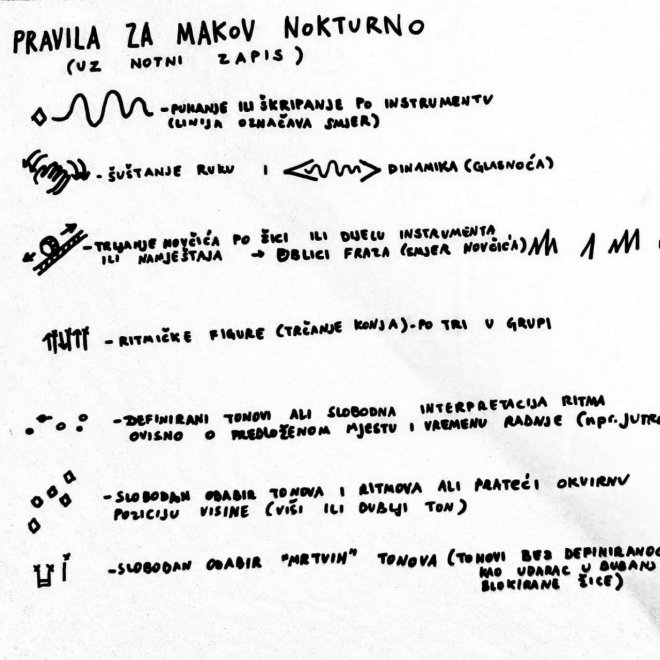 PRAVILA ZA MAKOV NOKTURNO
(UZ NOTNI ZAPIS)
- PUHANJE ILI ŠKRIPANJE PO INSTRUMENTU
(LINIJA OZNAČAVA SMJER)
- ŠUŠTANJE RUKU I DINAMIKA (GLASNOĆA)
- TRLJANJE NOVČIĆA PO ŽICI ILI DIJELU INSTRUMENTA
ILI NAMJEŠTAJA → OBLICI FRAZA (SMJER NOVČIĆA)
- RITMIČKE FIGURE (TRČANJE KONJA) - PO TRI U GRUPI
- DEFINIRANI TONOVI ALI SLOBODNA INTERPRETACIJA RITMA
OVISNO O PREDLOŽENOM MJESTU I VREMENU RADNJE (npr. JUTR
- SLOBODAN ODABIR TONOVA I RITMOVA ALI PRATEĆI OKVIRNU
POZICIJU VISINE (VIŠI ILI DUBLJI TON)
- SLOBODAN ODABIR "MRTVIH" TONOVA (TONOVI BEZ DEFINIRANOG
KAO UDARAC U BUBANJ
BLOKIRANE ŽICE)